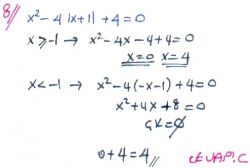 8/ x² - 4 |x+1| + 4 = 0
x ≥ -1 → x² - 4x - 4 + 4 = 0
x = 0 x = 4
x < -1 → x² - 4(-x-1) + 4 = 0
x² + 4x + 8 = 0
ÇK = ∅
0 + 4 = 4 //
CEVAP: C